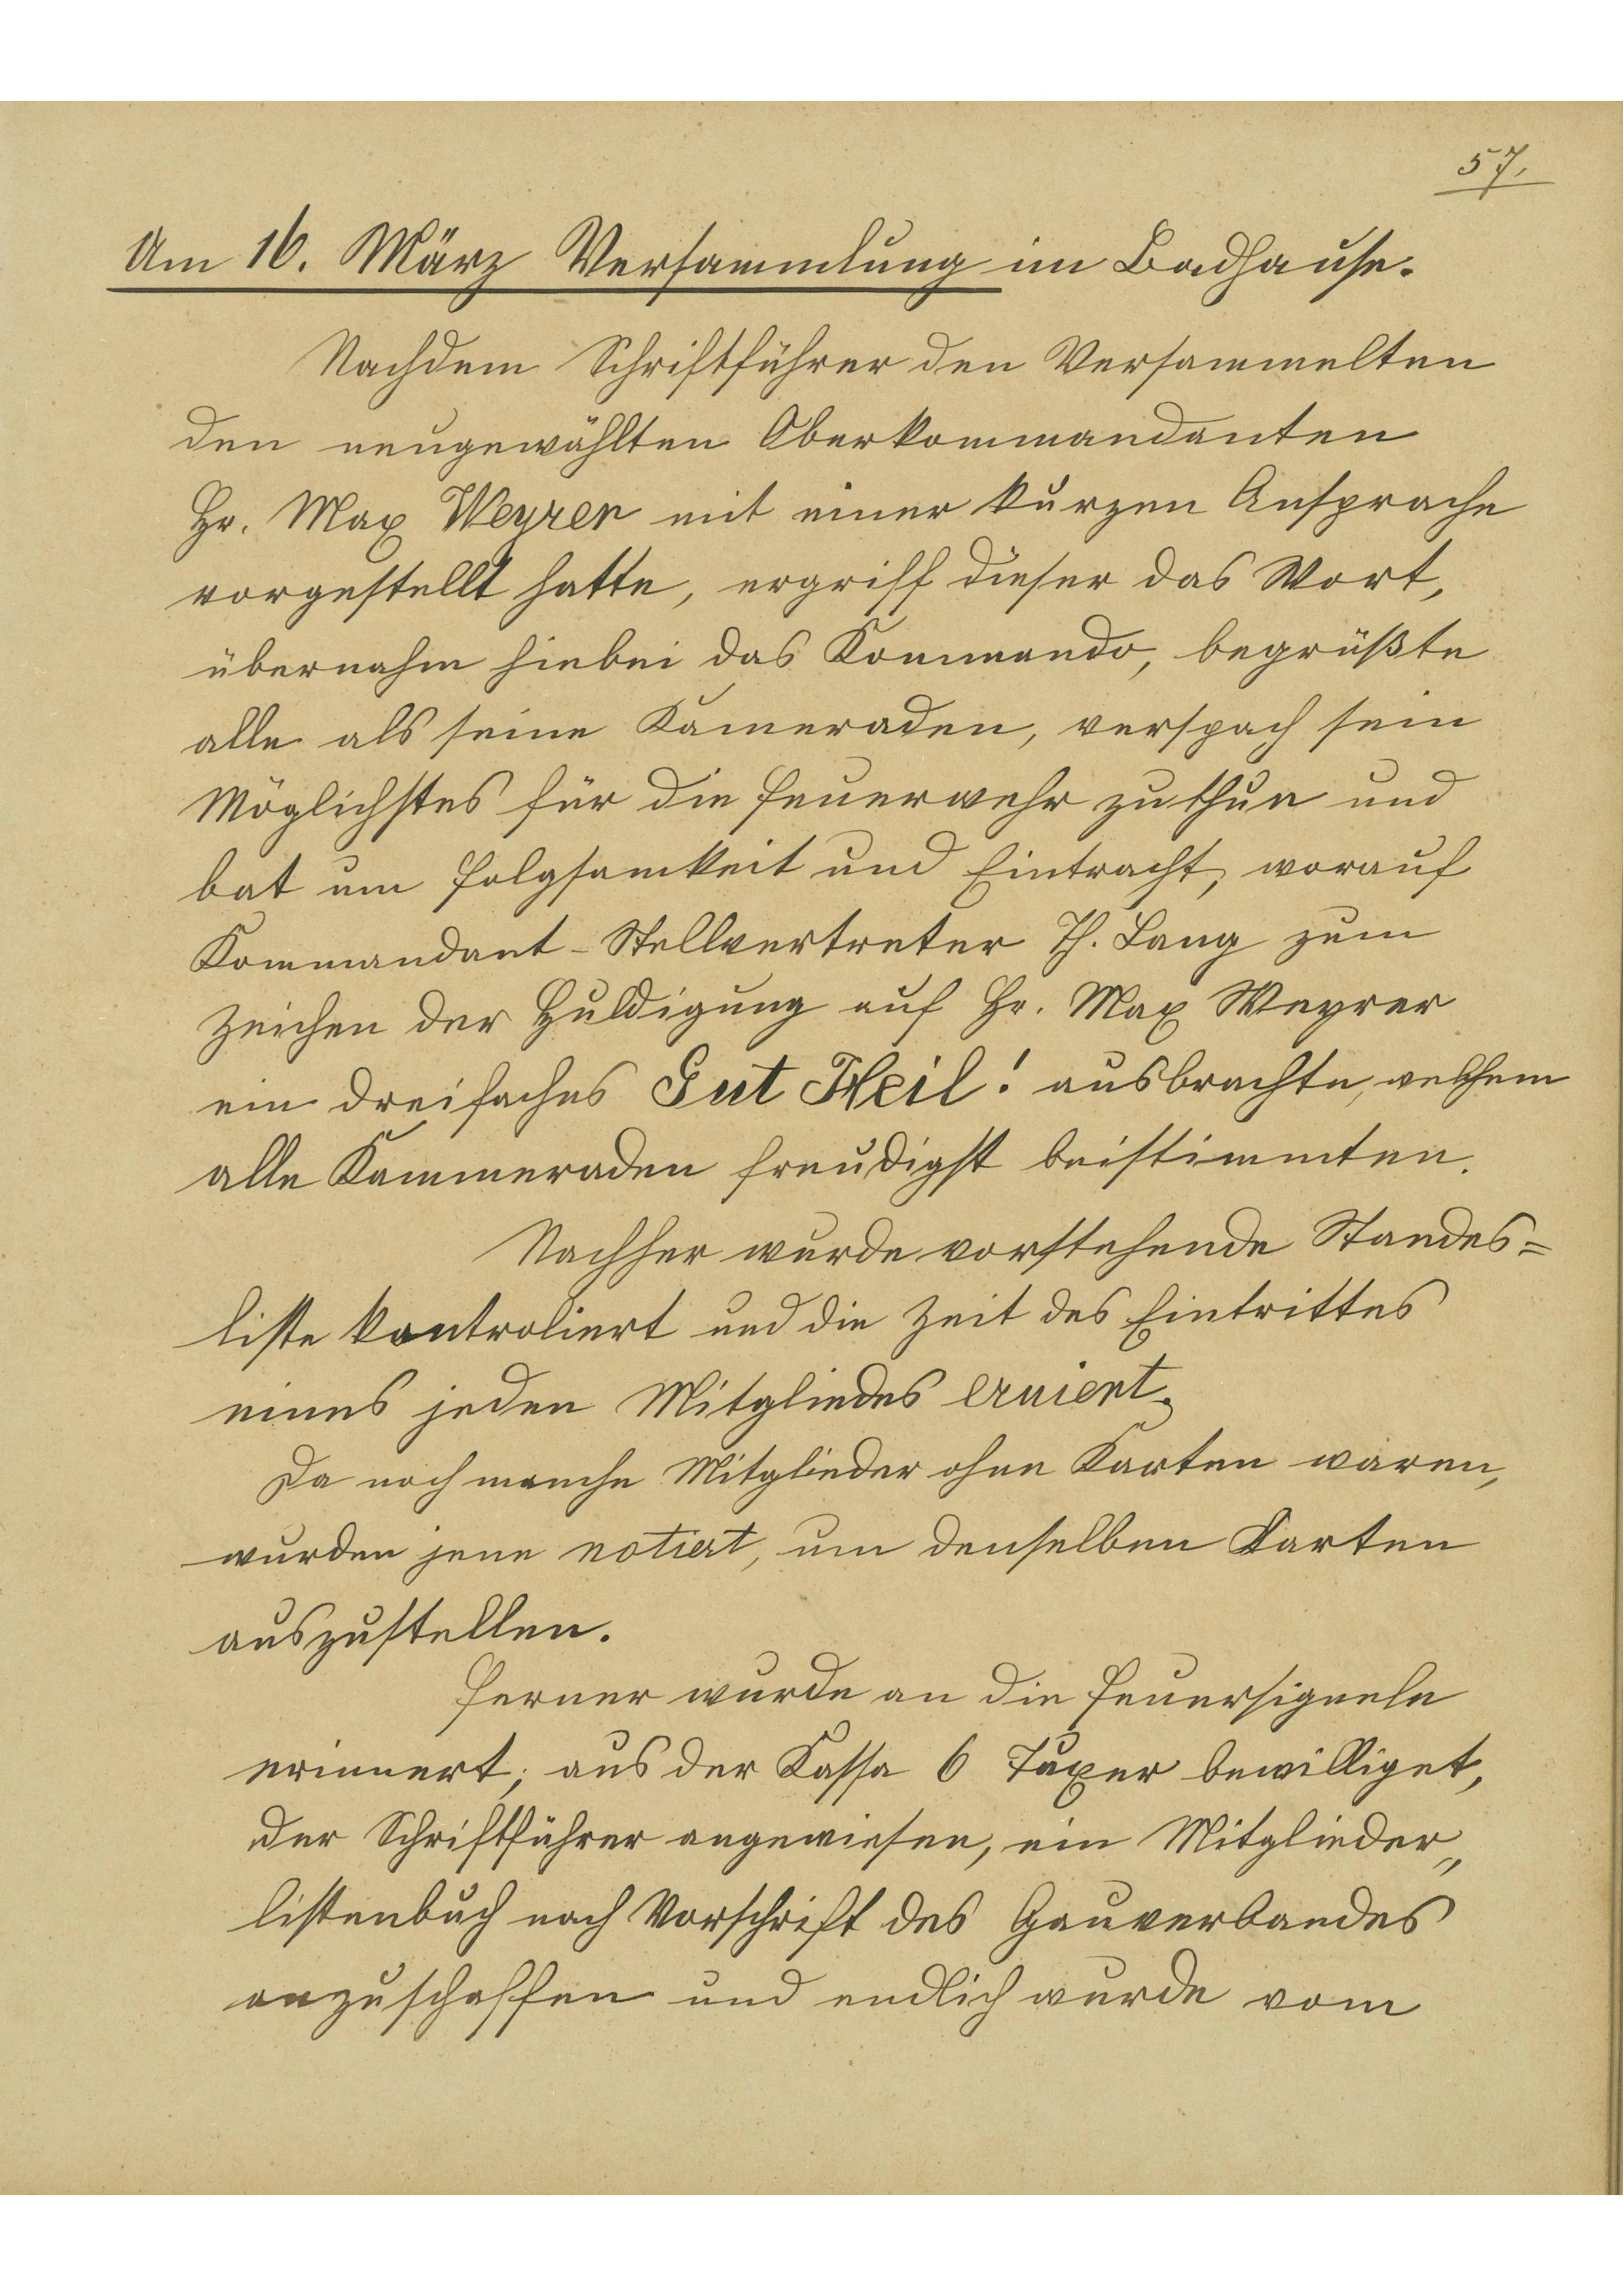 57.
Am 16. März Versammlung im Badhause.
Nachdem Schriftführer den Versammelten
den neugewählten Oberkommandanten
Hr. Max Weyrer mit einer kurzen Ansprache
vorgestellt hatte, ergriff dieser das Wort,
übernahm hiebei das Kommando, begrüßte
alle als seine Kameraden, verspach sein
Möglichstes für die Feuerwehr zu thun und
bat um Folgsamkeit und Eintracht, worauf
Kommandant-Stellvertreter Th. Lang zum
Zeichen der Huldigung auf Hr. Max Weyrer
ein dreifaches Gut Heil! ausbrachte, welchem
alle Kammeraden freudigst beistimmten.
Nachher wurde vorstehende Standes=
liste kontroliert und die Zeit des Eintrittes
eines jeden Mitgliedes eruiert.
Da noch manche Mitglieder ohne Karten waren,
wurden jene notiert, um denselben Karten
auszustellen.
Ferner wurde an die Feuersignale
erinnert; aus der Kassa 6 Taxer bewilliget,
der Schriftführer angewiesen, ein Mitglieder„
listenbuch nach Vorschrift des Gauverbandes
anzuschaffen und endlich wurde vom